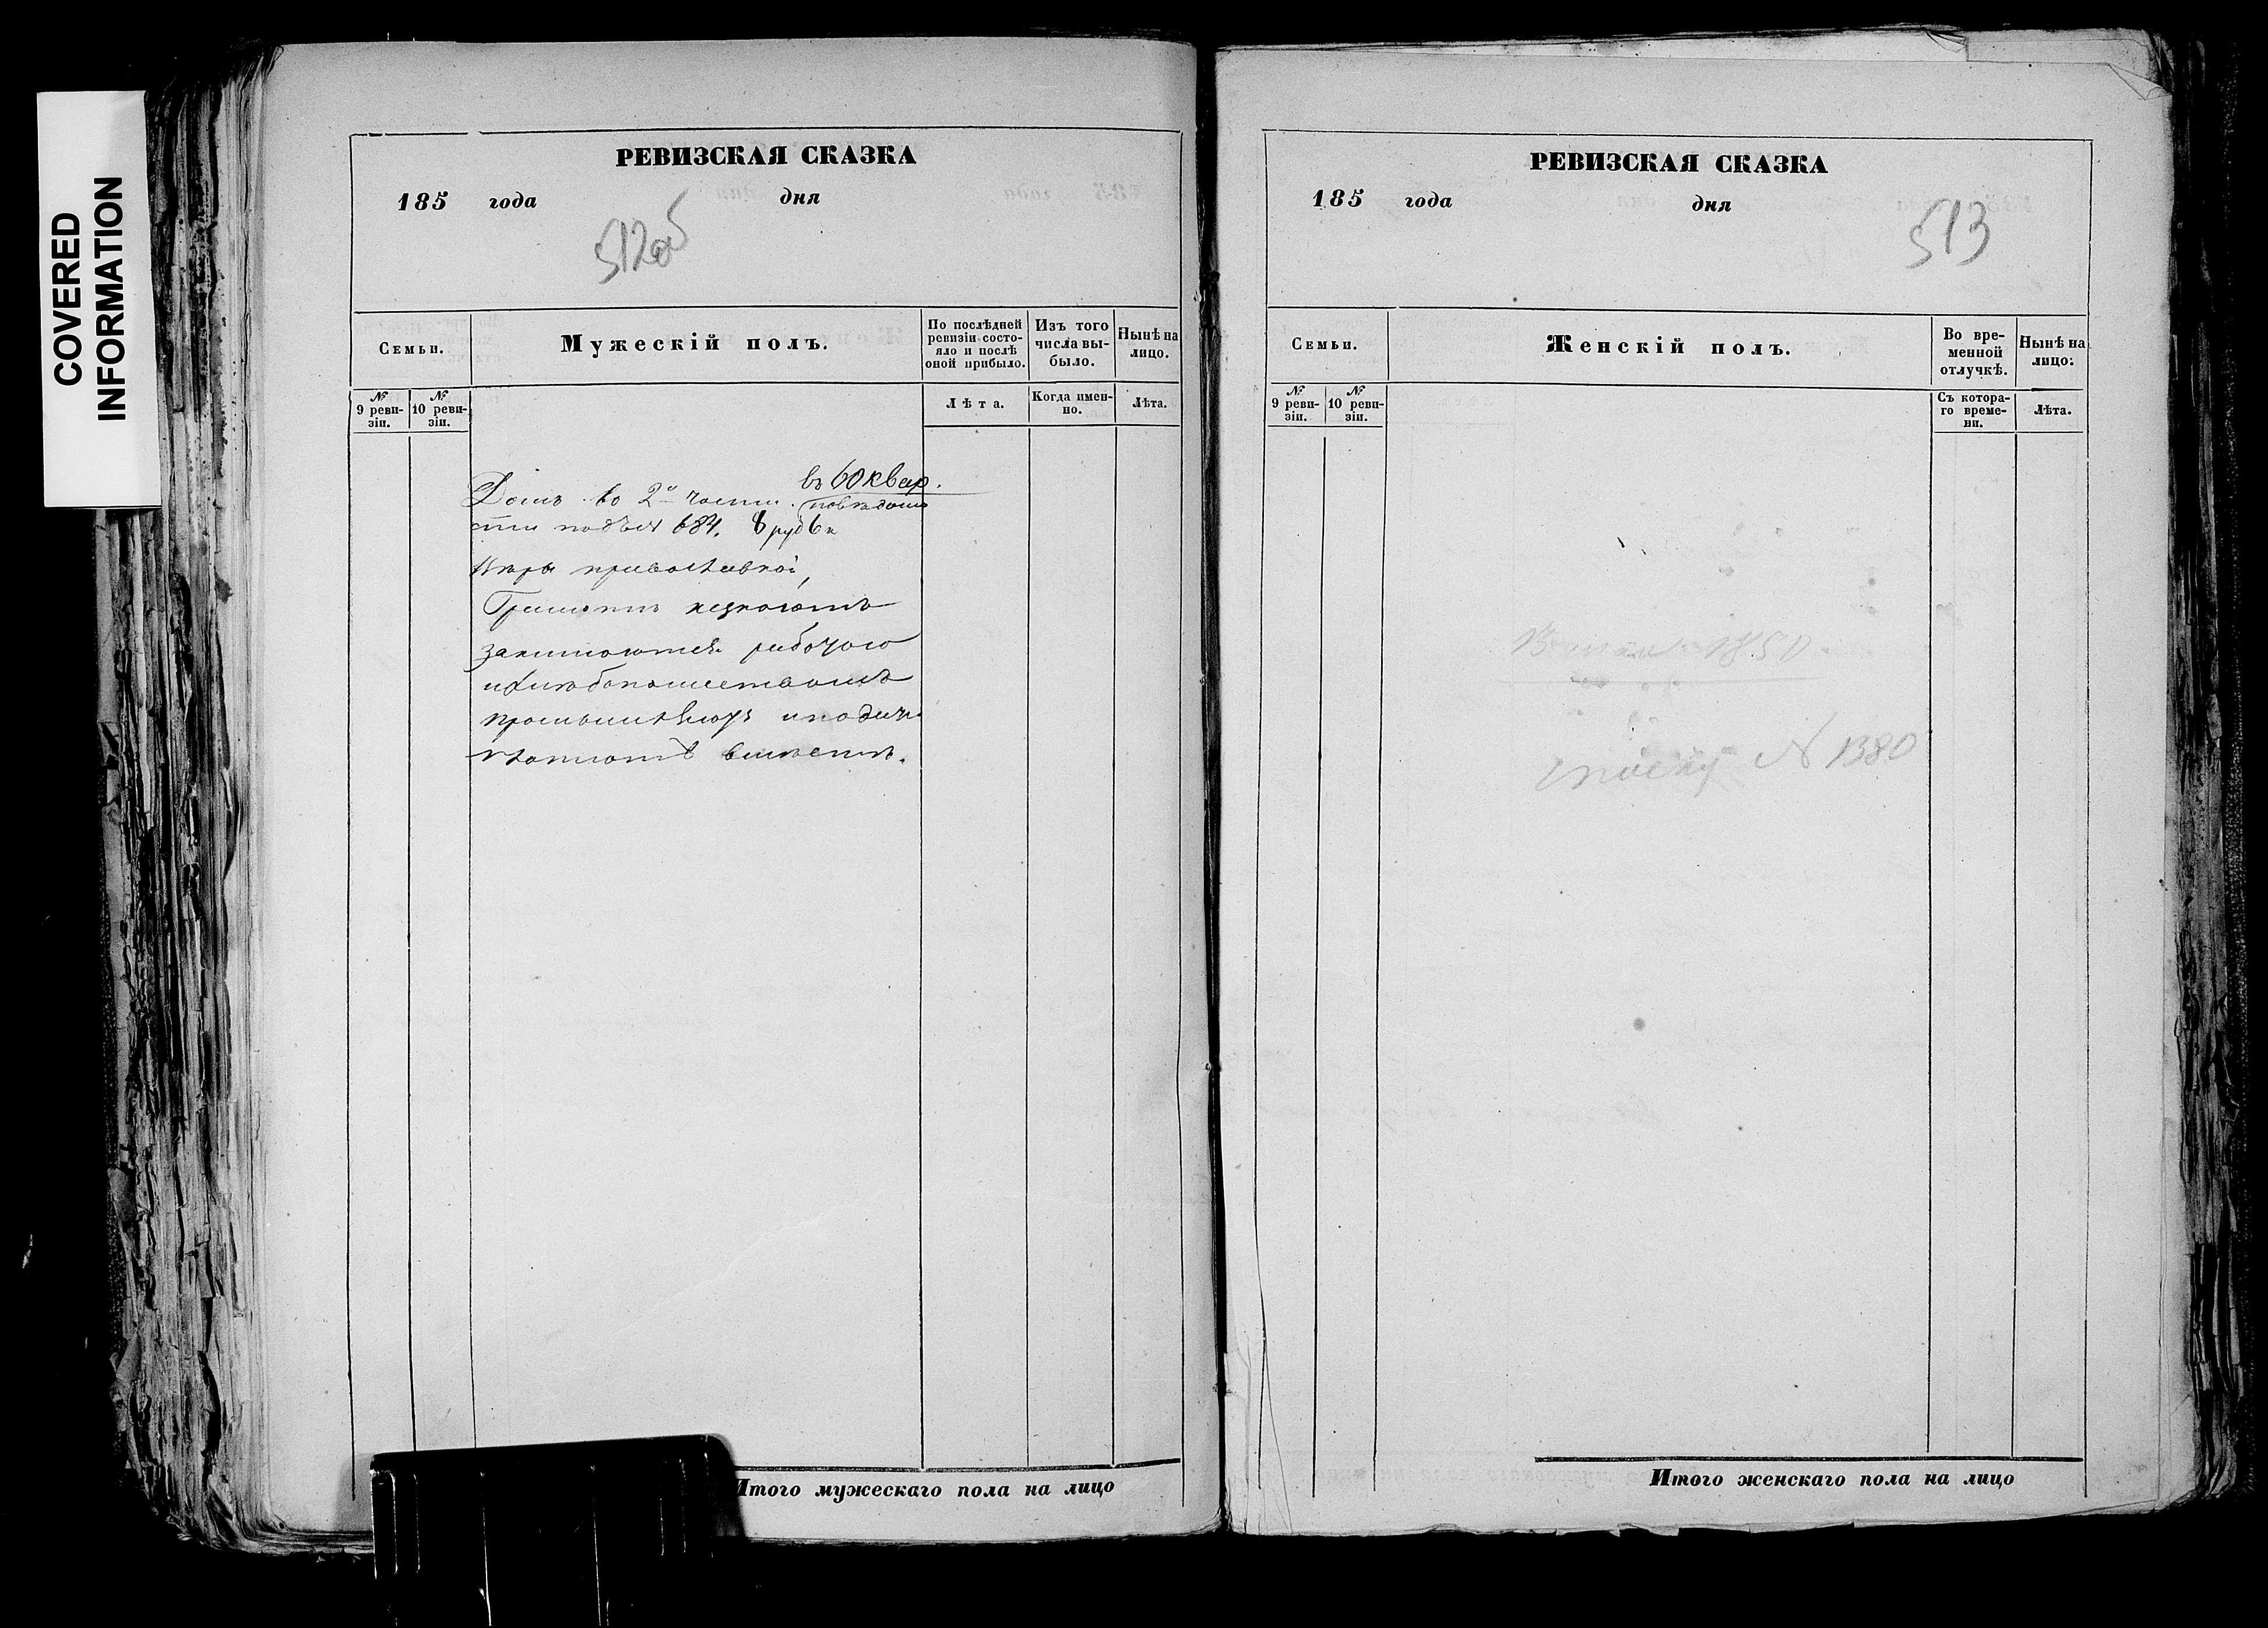 COVERED
INFORMATION
РЕВИЗСКАЯ СКАЗКА
185 года дня
512об
Семьи.
Мужескій полъ.
По послѣдней ревизіи состояло и послѣ оной прибыло.
Изъ того числа выбыло.
Нынѣ на лицо.
№ 9 ревизіи.
№ 10 ревизіи.
Лѣта.
Когда именно.
Лѣта.
въ 60 квар.
Домъ во 2й части. по вѣдомо
сти подъ № 684. 8 руб 6 к
Вѣры православной,
Грамотѣ незнаютъ
занимаются
и хлѣбопашествомъ
вмѣстѣ.
Итого мужескаго пола на лицо
РЕВИЗСКАЯ СКАЗКА
185 года дня
513
Семьи.
Женскій полъ.
Во временной отлучкѣ.
Нынѣ на лицо.
№ 9 ревизіи.
№ 10 ревизіи.
Съ котораго времени.
Лѣта.
1850
№ 1380
Итого женскаго пола на лицо